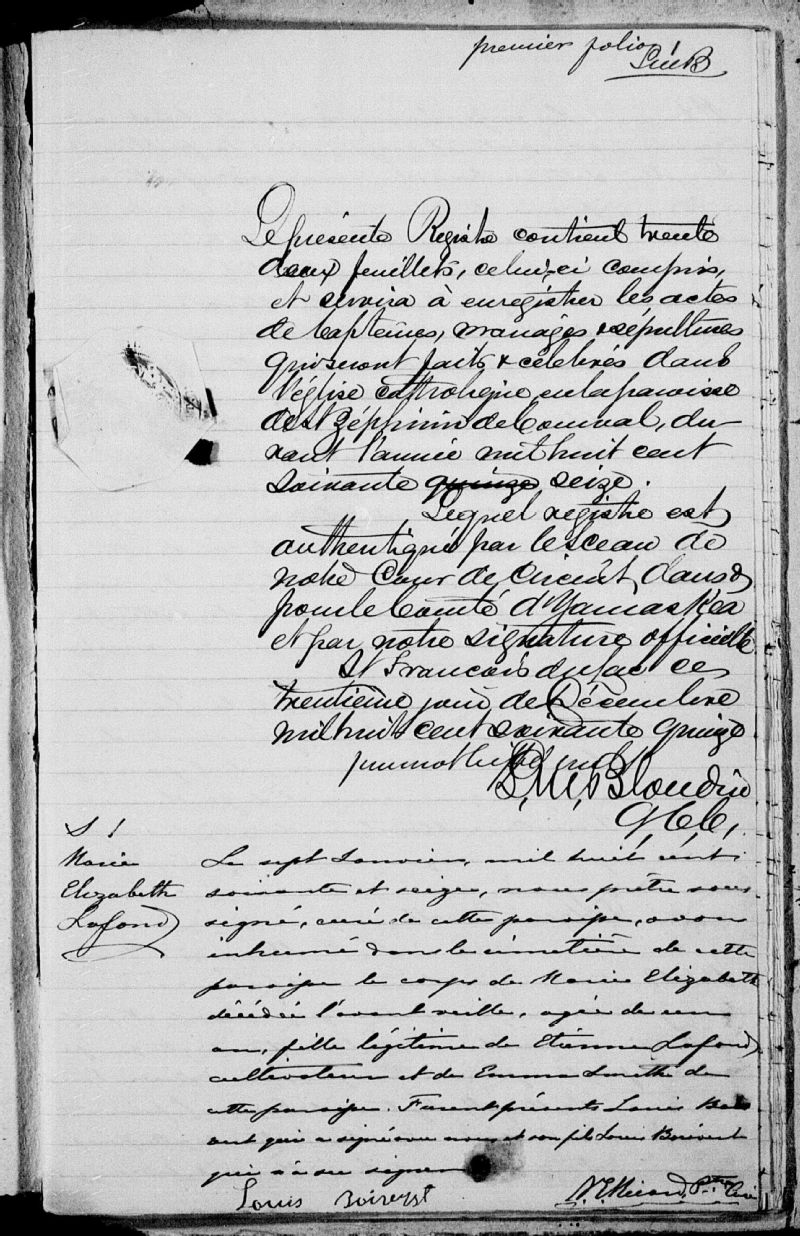 premier folio
Le présente Registre contient trente
deux feuillets, celui-ci compris,
et servira à enregistrer les actes
de baptêmes, mariages & sépultures
qui seront faits & célébrés dans
l'église catholique en la paroisse
de St Zéphirin de Courval, du-
rant l'année mil huit cent
soixante quinze seize.
Lequel registre est
authentiqué par le sceau de
notre Cour de Circuit, dans &
pour le Comté d'Yamaska
et par notre signature officielle
St François du Lac ce
trentième jour de Décembre
mil huit cent soixante quinze
Blondin
G.C.C.
S 1
Marie
Elizabeth
Lafond
Le sept Janvier, mil huit cent
soixante et seize, nous prêtre sous
signé, curé de cette paroisse, avons
inhumé dans le cimetière de cette
paroisse le corps de Marie Elizabeth
décédée l'avant veille, agée de un
an, fille légitime de Etienne Lafond
cultivateur et de Emma Smith de
cette paroisse. Furent présents Louis Bois
vert qui a signé avec nous et son fils Louis Boisvert
qui n'a su signer
Louis Boisvert
Ptre Curé